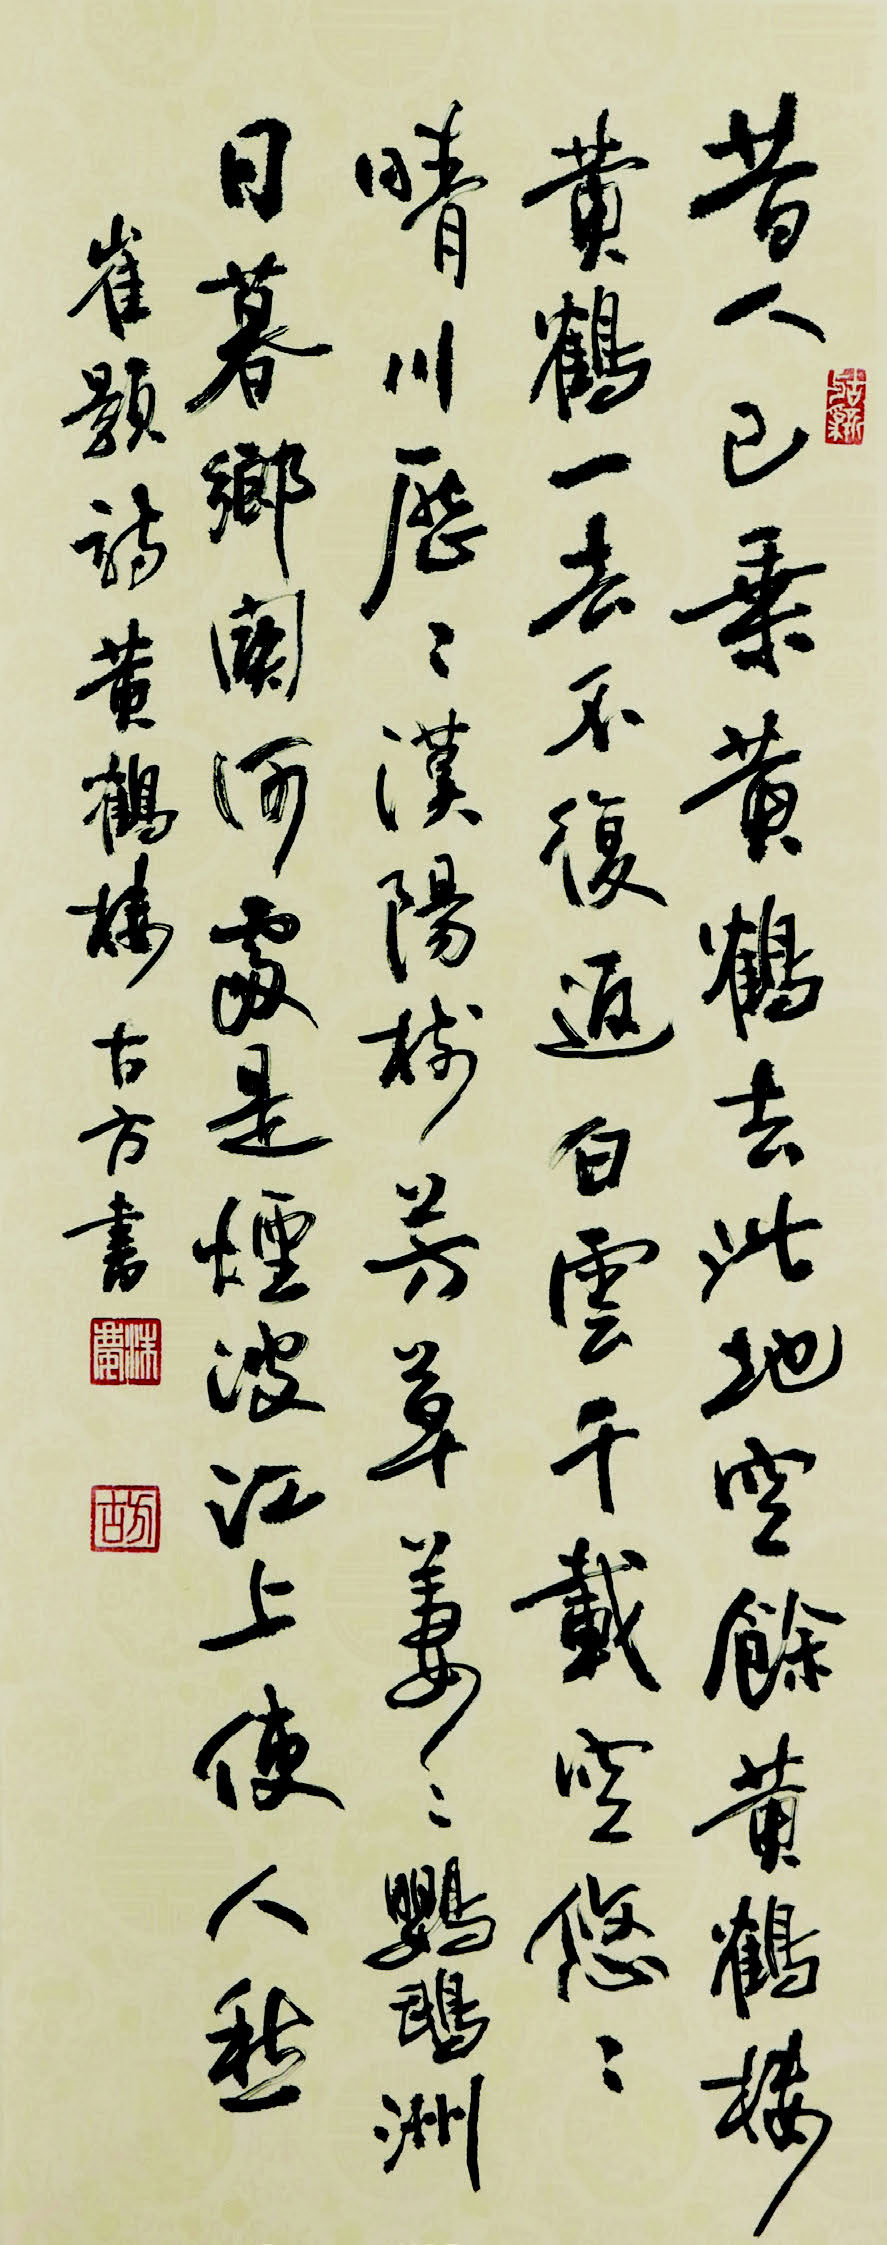 昔人已乗黄鶴去此地空餘黄鶴樓
黄鶴一去不復返白雲千載空悠〻
晴川歷〻漢陽樹芳草萋〻鸚鵡洲
日暮鄉關何處是煙波江上使人愁
崔顥詩黄鶴樓 古方書
古方